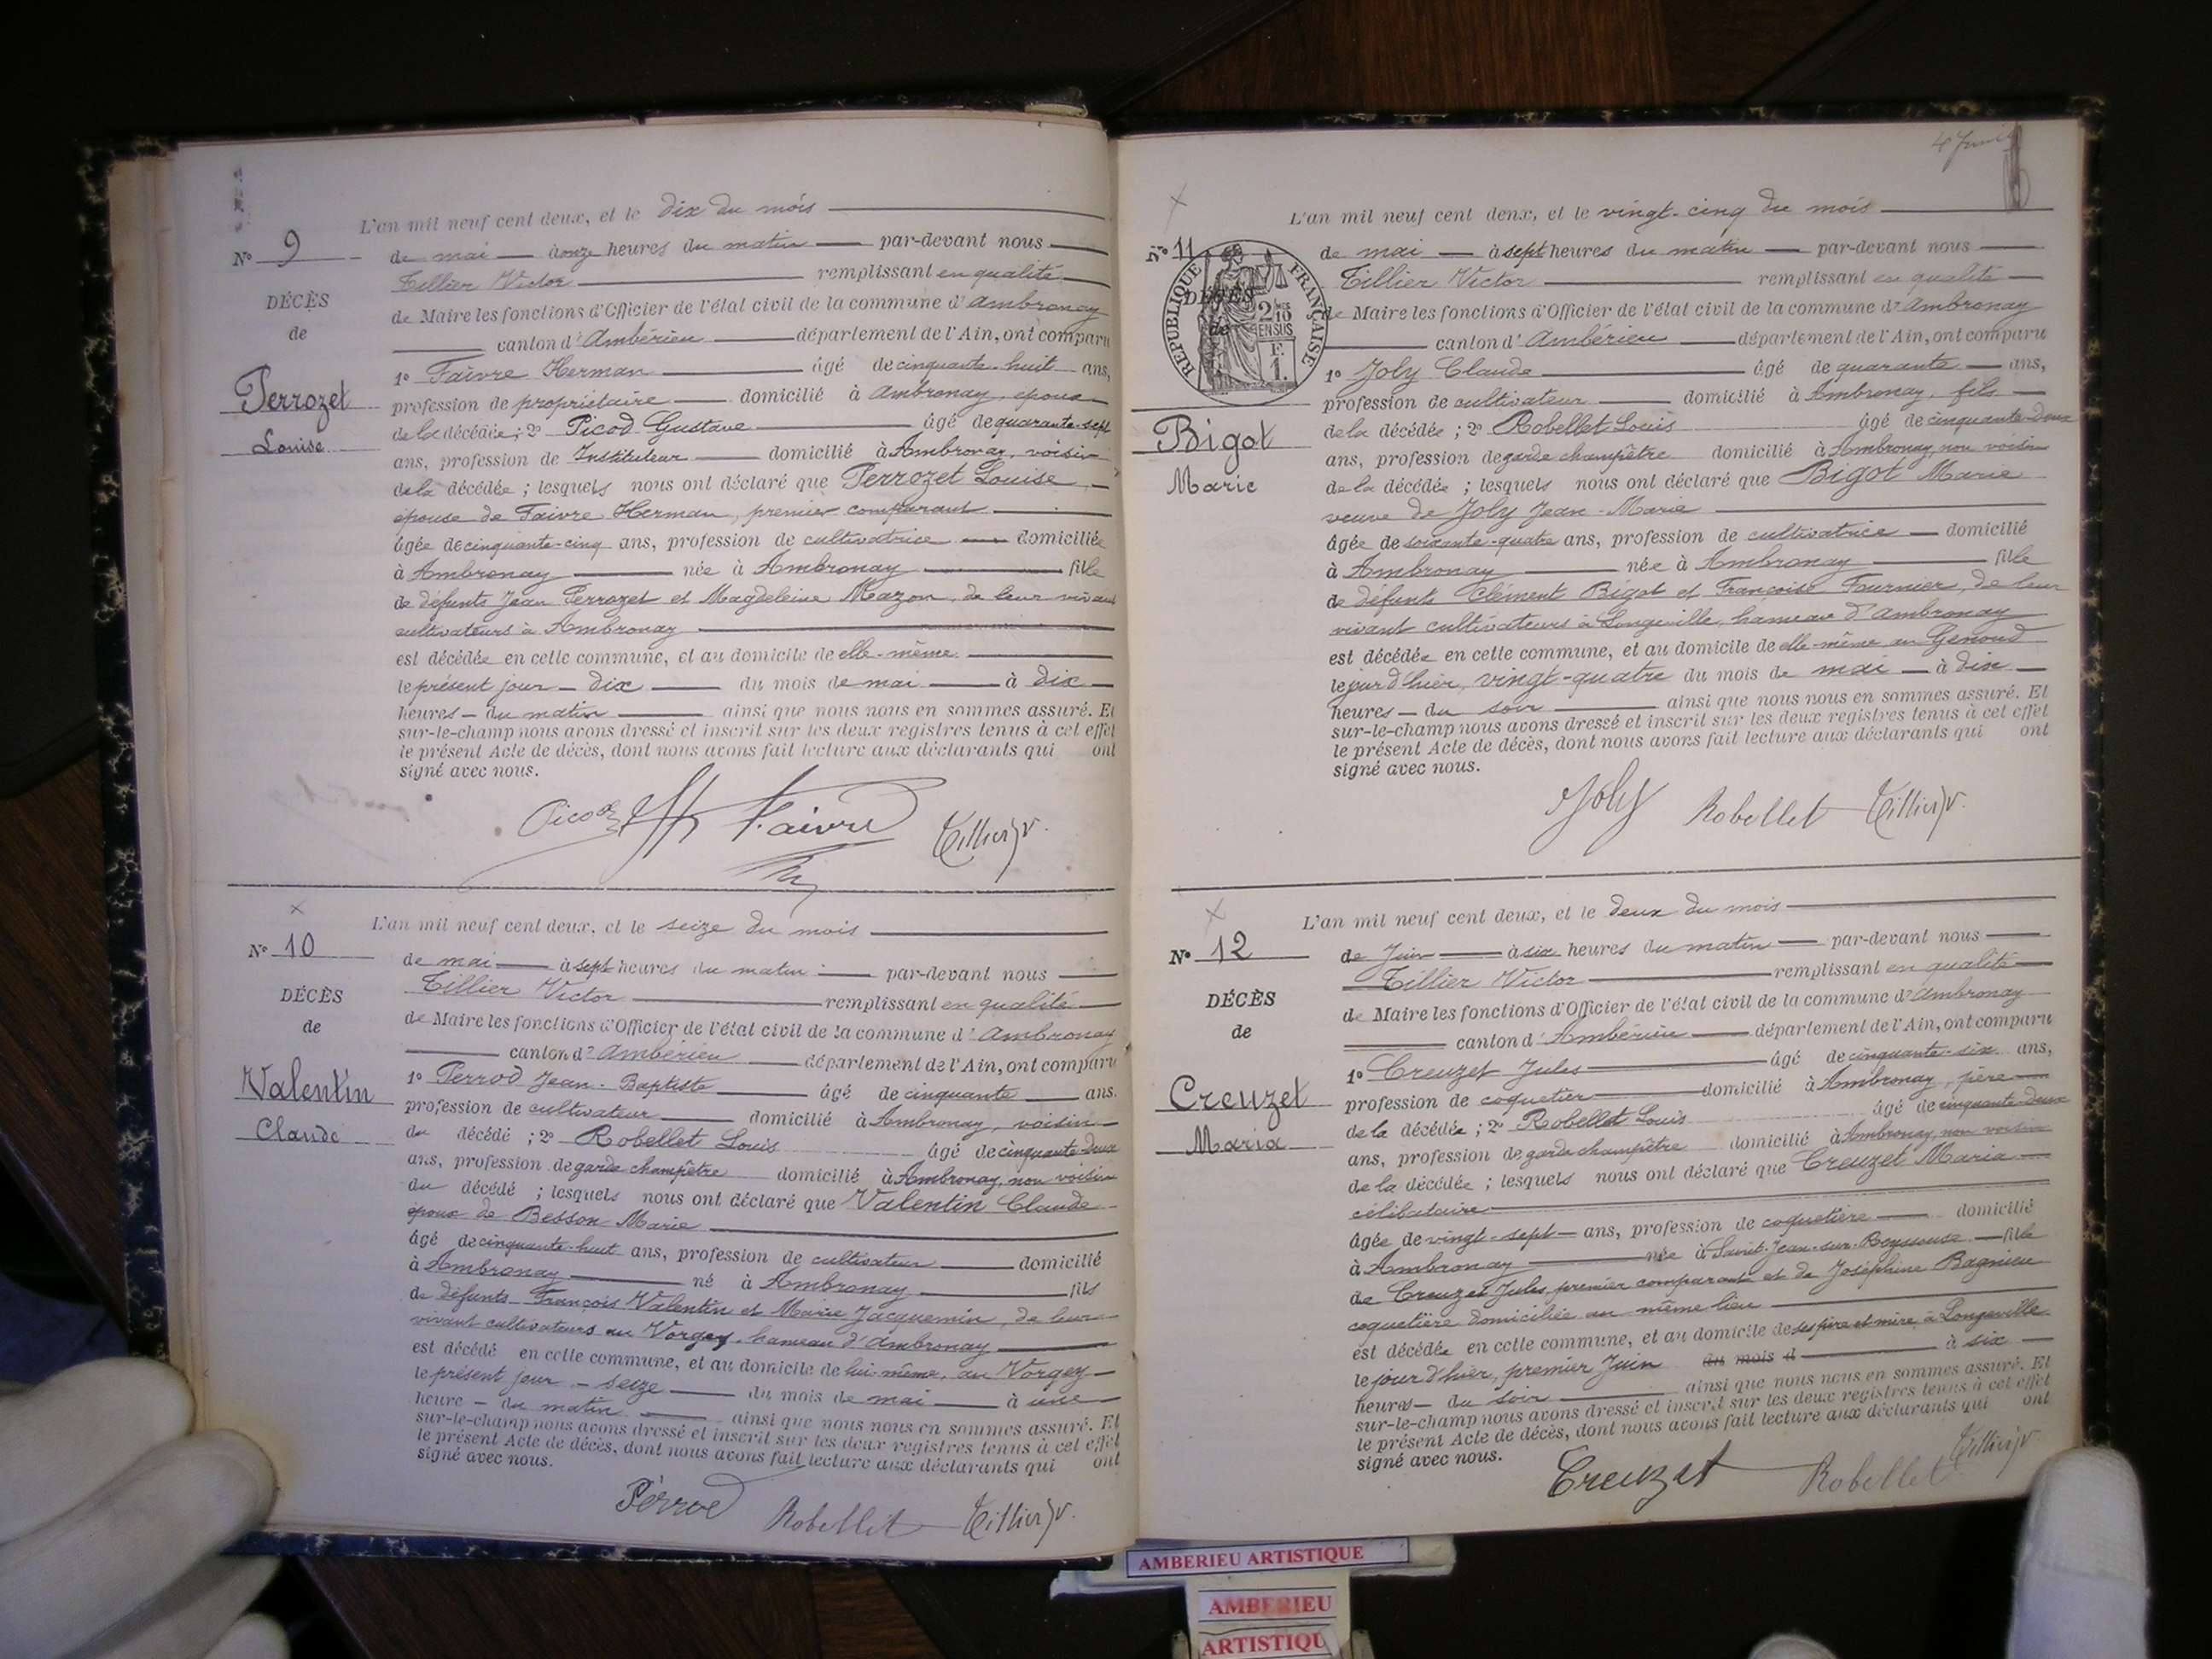 L'an mil neuf cent deux, et le dix du mois
N° 9
de mai à onze heures du matin par-devant nous
Tillier Victor remplissant en qualité
DÉCÈS
de
de Maire les fonctions d'Officier de l'état civil de la commune d'Ambronay
canton d'Ambérieu département de l'Ain, ont comparu
Perrozet
Louise
1° Faivre Herman âgé de cinquante-huit ans,
profession de propriétaire domicilié à Ambronay, époux
de la décédée ; 2° Picod Gustave âgé de quarante-sept
ans, profession de Instituteur domicilié à Ambronay, voisin
de la décédée ; lesquels nous ont déclaré que Perrozet Louise
épouse de Faivre Herman, premier comparant
âgée de cinquante-cinq ans, profession de cultivatrice domiciliée
à Ambronay née à Ambronay fille
de défunts Jean Perrozet et Magdeleine Mazon, de leur vivant
cultivateurs à Ambronay
est décédée en cette commune, et au domicile de elle-même
le présent jour - dix du mois de mai à dix
heures - du matin ainsi que nous nous en sommes assuré. Et
sur-le-champ nous avons dressé et inscrit sur les deux registres tenus à cet effet
le présent Acte de décès, dont nous avons fait lecture aux déclarants qui ont
signé avec nous.
Picod H Faivre Tillier V.
L'an mil neuf cent deux, et le seize du mois
N° 10
de mai à sept heures du matin par-devant nous
Tillier Victor remplissant en qualité
DÉCÈS
de
de Maire les fonctions d'Officier de l'état civil de la commune d'Ambronay
canton d'Ambérieu département de l'Ain, ont comparu
Valentin
Claude
1° Perrod Jean-Baptiste âgé de cinquante ans.
profession de cultivateur domicilié à Ambronay, voisin
du décédé ; 2° Robellet Louis âgé de cinquante-deux
ans, profession de garde champêtre domicilié à Ambronay, non voisin
du décédé ; lesquels nous ont déclaré que Valentin Claude
époux de Besson Marie
âgé de cinquante-huit ans, profession de cultivateur domicilié
à Ambronay né à Ambronay fils
de défunts François Valentin et Marie Jacquemin, de leur
vivant cultivateurs au Vorgey, hameau d'Ambronay
est décédé en cette commune, et au domicile de lui-même, au Vorgey
le présent jour - seize du mois de mai à une
heure - du matin ainsi que nous nous en sommes assuré. Et
sur-le-champ nous avons dressé et inscrit sur les deux registres tenus à cet effet
le présent Acte de décès, dont nous avons fait lecture aux déclarants qui ont
signé avec nous.
Perrod Robellet Tillier V.
4 Juin
L'an mil neuf cent deux, et le vingt-cinq du mois
N° 11
de mai à sept heures du matin par-devant nous
Tillier Victor remplissant en qualité
RÉPUBLIQUE FRANÇAISE
2/10 EN SUS
F. 1.
DÉCÈS
de
de Maire les fonctions d'Officier de l'état civil de la commune d'Ambronay
canton d'Ambérieu département de l'Ain, ont comparu
Bigot
Marie
1° Joly Claude âgé de quarante ans,
profession de cultivateur domicilié à Ambronay, fils
de la décédée ; 2° Robellet Louis âgé de cinquante-deux
ans, profession de garde champêtre domicilié à Ambronay, non voisin
de la décédée ; lesquels nous ont déclaré que Bigot Marie
veuve de Joly Jean-Marie
âgée de soixante-quatre ans, profession de cultivatrice domicilié
à Ambronay née à Ambronay fille
de défunts Clément Bigot et Françoise Fournier, de leur
vivant cultivateurs à Longeville, hameau d'Ambronay
est décédée en cette commune, et au domicile de elle-même au Genoud
le jour d'hier, vingt-quatre du mois de mai à dix
heures - du soir ainsi que nous nous en sommes assuré. Et
sur-le-champ nous avons dressé et inscrit sur les deux registres tenus à cet effet
le présent Acte de décès, dont nous avons fait lecture aux déclarants qui ont
signé avec nous.
Joly Robellet Tillier V.
L'an mil neuf cent deux, et le deux du mois
N° 12
de Juin à six heures du matin par-devant nous
Tillier Victor remplissant en qualité
DÉCÈS
de
de Maire les fonctions d'Officier de l'état civil de la commune d'Ambronay
canton d'Ambérieu département de l'Ain, ont comparu
Creuzet
Maria
1° Creuzet Jules âgé de cinquante-six ans,
profession de coquetier domicilié à Ambronay, père
de la décédée ; 2° Robellet Louis âgé de cinquante-deux
ans, profession de garde champêtre domicilié à Ambronay, non voisin
de la décédée ; lesquels nous ont déclaré que Creuzet Maria
célibataire
âgée de vingt-sept ans, profession de coquetière domicilié
à Ambronay née à Saint-Jean-sur-Reyssouze fille
de Creuzet Jules, premier comparant et de Joséphine Bagnieu
coquetière domiciliée au même lieu
est décédée en cette commune, et au domicile de ses père et mère, à Longeville
le jour d'hier, premier Juin du mois d à six
heures - du soir ainsi que nous nous en sommes assuré. Et
sur-le-champ nous avons dressé et inscrit sur les deux registres tenus à cet effet
le présent Acte de décès, dont nous avons fait lecture aux déclarants qui ont
signé avec nous.
Creuzet Robellet Tillier V.
AMBERIEU ARTISTIQUE
AMBERIEU
ARTISTIQU